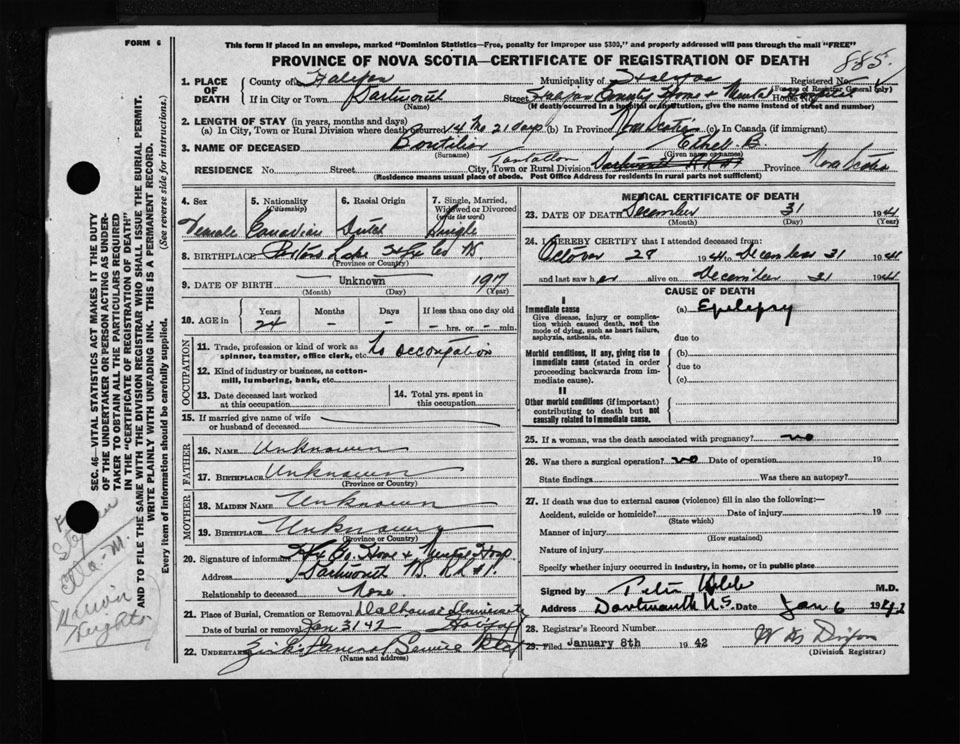 FORM 6
This form if placed in an envelope, marked "Dominion Statistics—Free, penalty for improper use $300," and properly addressed will pass through the mail "FREE"
PROVINCE OF NOVA SCOTIA—CERTIFICATE OF REGISTRATION OF DEATH
885.
1. PLACE OF DEATH County of Halifax Municipality of Halifax Registered No.
(For use of Registrar General only)
If in City or Town Dartmouth Street Halifax County Home + Mental Hospital House No.
(Name) (If death occurred in a hospital or institution, give the name instead of street and number)
2. LENGTH OF STAY (in years, months and days)
(a) In City, Town or Rural Division where death occurred 14 Mo 21 days (b) In Province Nova Scotia (c) In Canada (if immigrant)
3. NAME OF DECEASED Boutilier Ethel B.
(Surname) (Given name or names)
RESIDENCE No. Street Tantallon City, Town or Rural Division Dartmouth Province Nova Scotia
(Residence means usual place of abode. Post Office Address for residents in rural parts not sufficient)
4. Sex 5. Nationality (Citizenship) 6. Racial Origin 7. Single, Married, Widowed or Divorced (Write the word)
Female Canadian Dutch Single
8. BIRTHPLACE Porters Lake Hfx Co NS.
(Province or Country)
9. DATE OF BIRTH Unknown 1917
(Month) (Day) (Year)
10. AGE in Years Months Days If less than one day old
24 – – – hrs. or – min.
OCCUPATION
11. Trade, profession or kind of work as spinner, teamster, office clerk, etc. No occupation
12. Kind of industry or business, as cotton-mill, lumbering, bank, etc.
13. Date deceased last worked at this occupation
14. Total yrs. spent in this occupation
15. If married give name of wife or husband of deceased
FATHER
16. NAME Unknown
17. BIRTHPLACE Unknown
(Province or Country)
MOTHER
18. MAIDEN NAME Unknown
19. BIRTHPLACE Unknown
(Province or Country)
20. Signature of informant Hfx Co. Home + Mental Hosp
Address Dartmouth NS.
Relationship to deceased None
21. Place of Burial, Cremation or Removal Dalhousie University
Date of burial or removal Jan 31 42 Halifax
22. UNDERTAKER Funeral Service
(Name and address)
MEDICAL CERTIFICATE OF DEATH
23. DATE OF DEATH December 31 1941
(Month) (Day) (Year)
24. I HEREBY CERTIFY that I attended deceased from:
October 28 1941 to December 31 1941
and last saw her alive on December 31 1941
CAUSE OF DEATH
I
Immediate cause (a) Epilepsy
Give disease, injury or complication which caused death, not the mode of dying, such as heart failure, asphyxia, asthenia, etc.
due to
Morbid conditions, if any, giving rise to immediate cause (stated in order proceeding backwards from immediate cause).
(b)
due to
(c)
II
Other morbid conditions (if important) contributing to death but not causally related to immediate cause.
25. If a woman, was the death associated with pregnancy? no
26. Was there a surgical operation? no Date of operation 19
State findings Was there an autopsy?
27. If death was due to external causes (violence) fill in also the following:—
Accident, suicide or homicide? Date of injury 19
(State which)
Manner of injury
(How sustained)
Nature of injury
Specify whether injury occurred in industry, in home, or in public place
Signed by M.D.
Address Dartmouth N.S. Date Jan 6 1942
28. Registrar's Record Number
29. Filed January 8th 1942
(Division Registrar)
SEC. 46—VITAL STATISTICS ACT MAKES IT THE DUTY
OF THE UNDERTAKER OR PERSON ACTING AS UNDER-
TAKER TO OBTAIN ALL THE PARTICULARS REQUIRED
IN THE "CERTIFICATE OF REGISTRATION OF DEATH"
AND TO FILE THE SAME WITH THE DIVISION REGISTRAR WHO SHALL ISSUE THE BURIAL PERMIT.
WRITE PLAINLY WITH UNFADING INK. THIS IS A PERMANENT RECORD.
Every item of information should be carefully supplied. (See reverse side for instructions.)
Heights